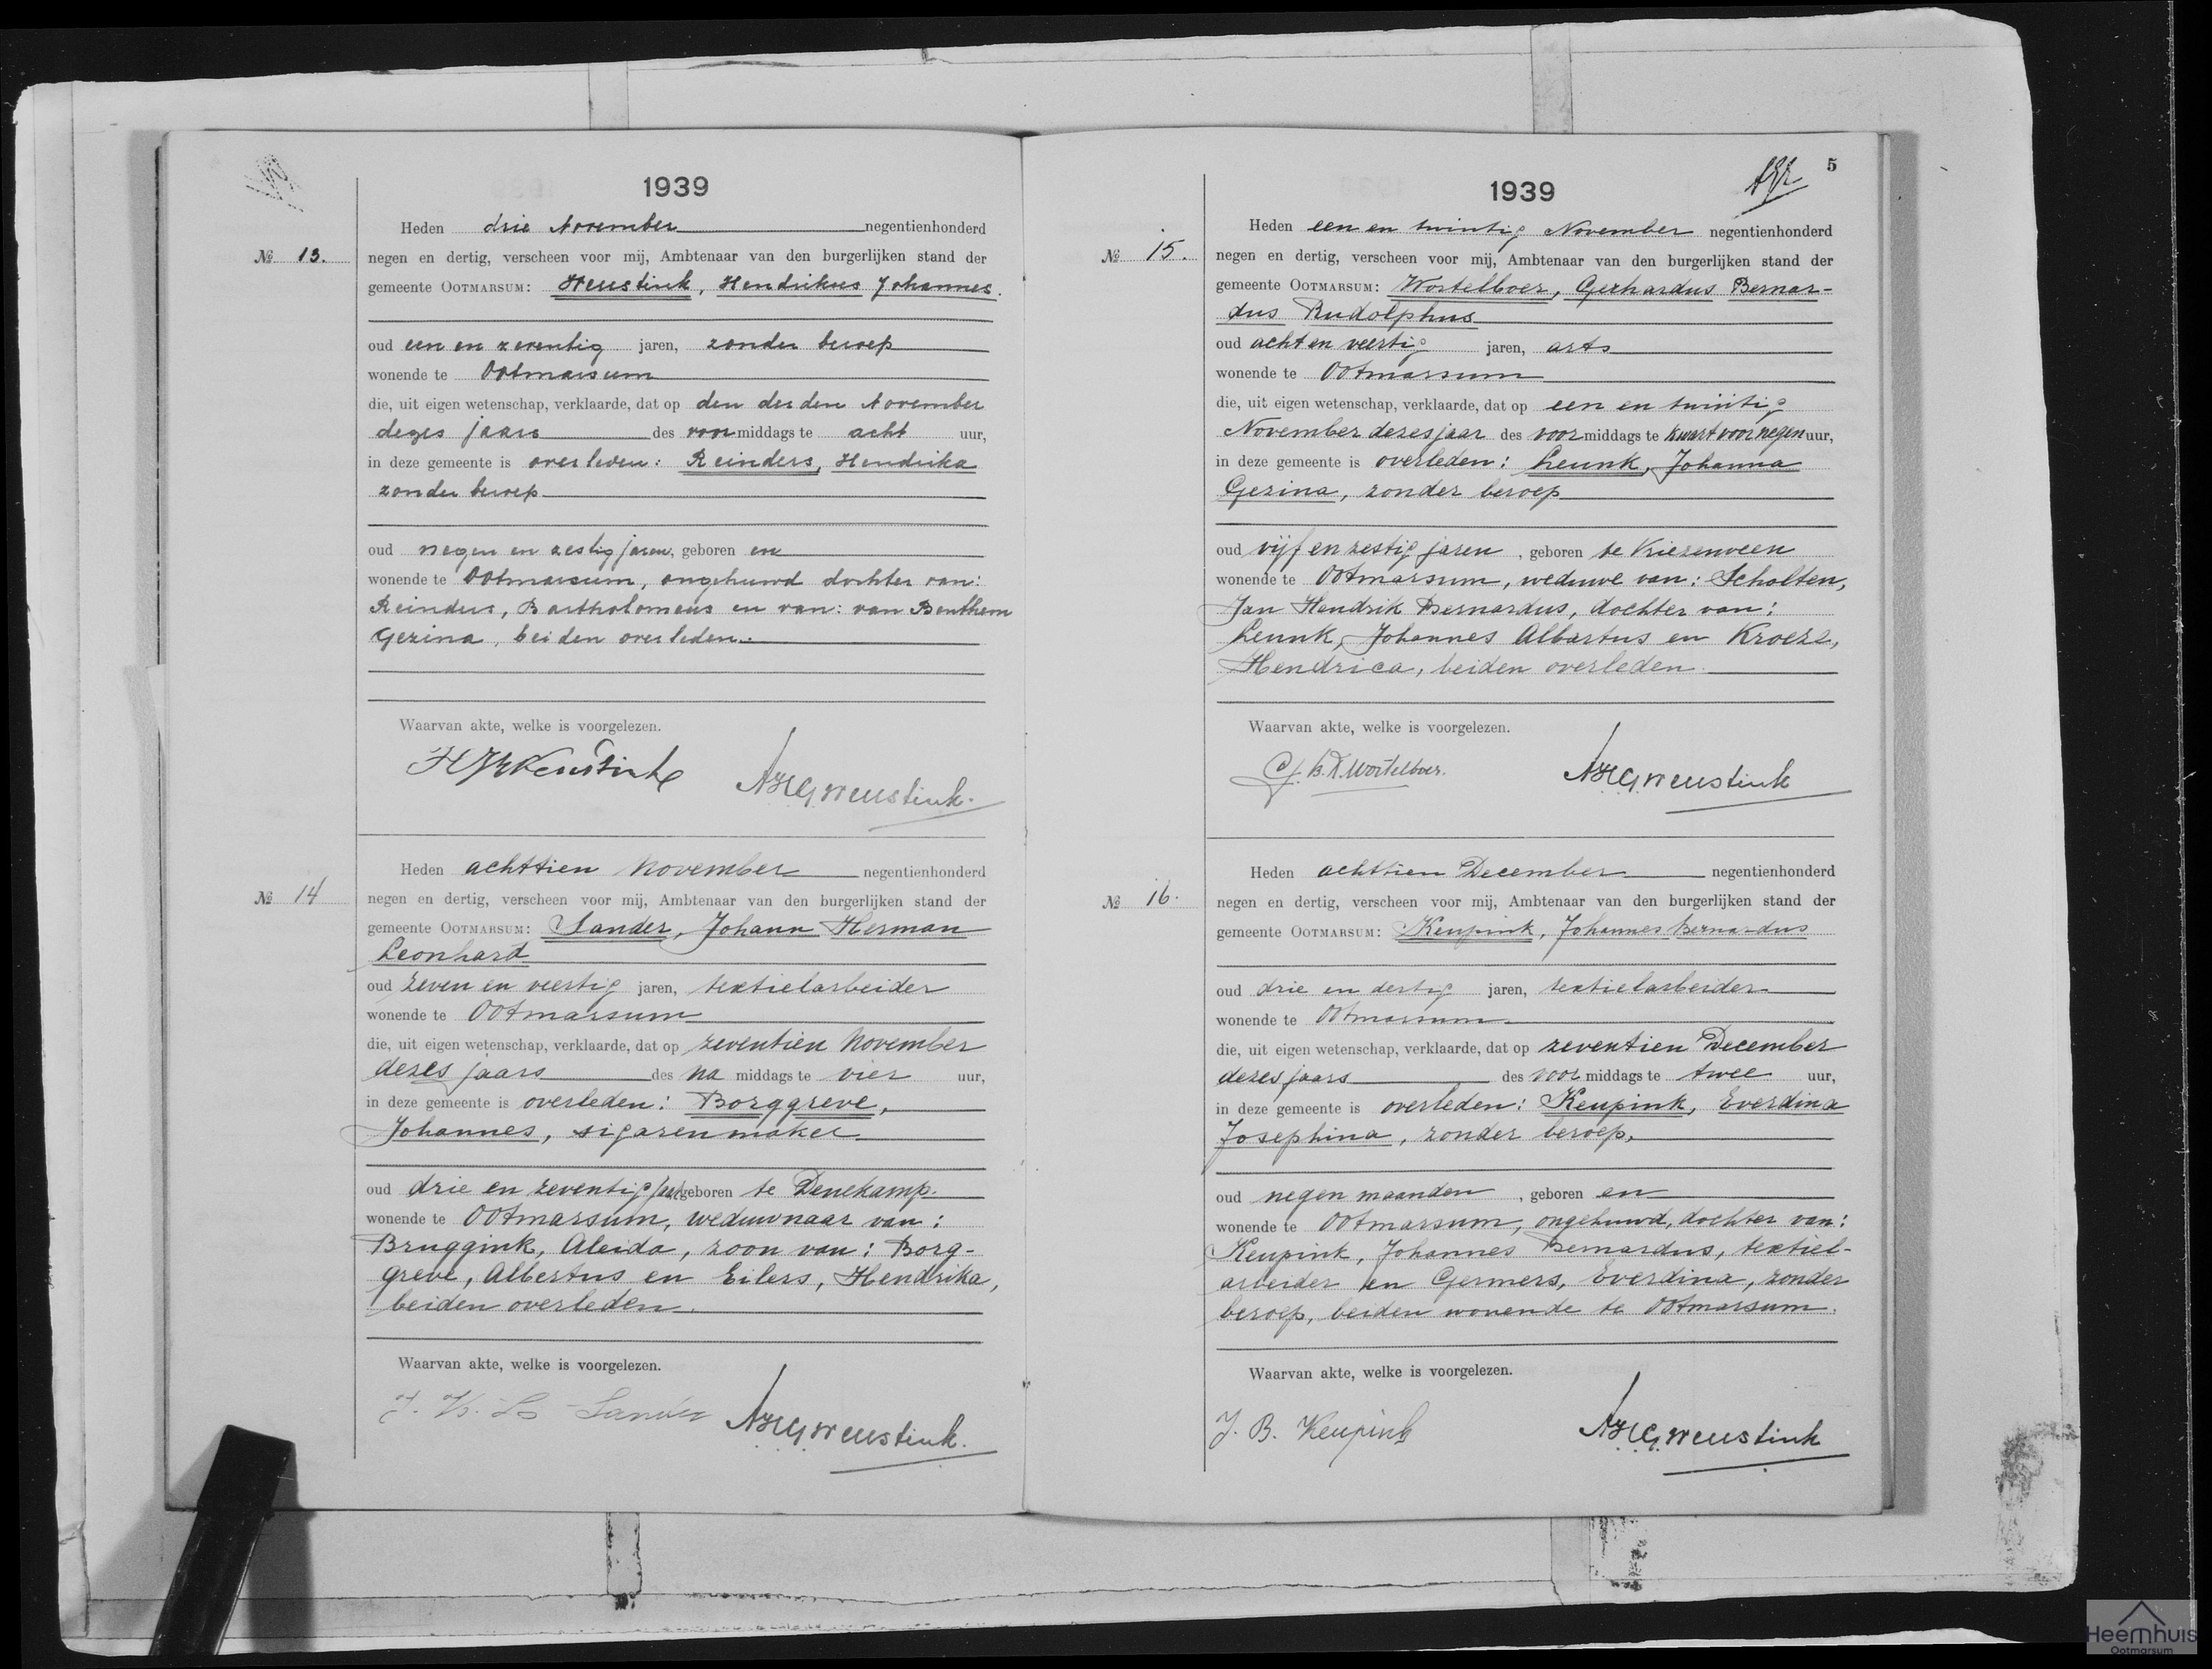 1939
Heden drie November negentienhonderd
№ 13. negen en dertig, verscheen voor mij, Ambtenaar van den burgerlijken stand der
gemeente OOTMARSUM: Heustink, Hendrikus Johannes.
oud een en zeventig jaren, zonder beroep
wonende te Ootmarsum
die, uit eigen wetenschap, verklaarde, dat op den derden November
dezes jaars des voor middags te acht uur,
in deze gemeente is overleden: Reinders, Hendrika
zonder beroep
oud negen en zestig jaren, geboren en
wonende te Ootmarsum, ongehuwd dochter van:
Reinders, Bartholomeus en van: van Benthem
Gezina, beiden overleden.
Waarvan akte, welke is voorgelezen.
AHGWeustink.
Heden achttien November negentienhonderd
№ 14 negen en dertig, verscheen voor mij, Ambtenaar van den burgerlijken stand der
gemeente OOTMARSUM: Sander, Johann Herman
Leonhard
oud zeven en veertig jaren, textielarbeider
wonende te Ootmarsum
die, uit eigen wetenschap, verklaarde, dat op zeventien November
dezes jaars des na middags te vier uur,
in deze gemeente is overleden: Borggreve,
Johannes, sigarenmaker
oud drie en zeventig jaar geboren te Denekamp.
wonende te Ootmarsum, weduwnaar van:
Bruggink, Aleida, zoon van: Borg-
greve, Albertus en Eilers, Hendrika,
beiden overleden.
Waarvan akte, welke is voorgelezen.
J. H. L. Sander AHGWeustink.
5
1939
Heden een en twintig November negentienhonderd
№ 15. negen en dertig, verscheen voor mij, Ambtenaar van den burgerlijken stand der
gemeente OOTMARSUM: Wortelboer, Gerhardus Bernar-
dus Rudolphus
oud acht en veertig jaren, arts
wonende te Ootmarsum
die, uit eigen wetenschap, verklaarde, dat op een en twintig
November dezes jaar des voor middags te kwart voor negen uur,
in deze gemeente is overleden: Leunk, Johanna
Gezina, zonder beroep
oud vijf en zestig jaren, geboren te Vriezenveen
wonende te Ootmarsum, weduwe van: Scholten,
Jan Hendrik Bernardus, dochter van:
Leunk, Johannes Albartus en Kroeze,
Hendrica, beiden overleden.
Waarvan akte, welke is voorgelezen.
G. B. R. Wortelboer. AHGWeustink
Heden achttien December negentienhonderd
№ 16. negen en dertig, verscheen voor mij, Ambtenaar van den burgerlijken stand der
gemeente OOTMARSUM: Keupink, Johannes Bernardus
oud drie en dertig jaren, textielarbeider
wonende te Ootmarsum
die, uit eigen wetenschap, verklaarde, dat op zeventien December
dezes jaars des voor middags te twee uur,
in deze gemeente is overleden: Keupink, Everdina
Josephina, zonder beroep,
oud negen maanden, geboren en
wonende te Ootmarsum, ongehuwd, dochter van:
Keupink, Johannes Bernardus, textiel-
arbeider en Germers, Everdina, zonder
beroep, beiden wonende te Ootmarsum.
Waarvan akte, welke is voorgelezen.
J. B. Keupink AHGWeustink
Heemhuis
Ootmarsum